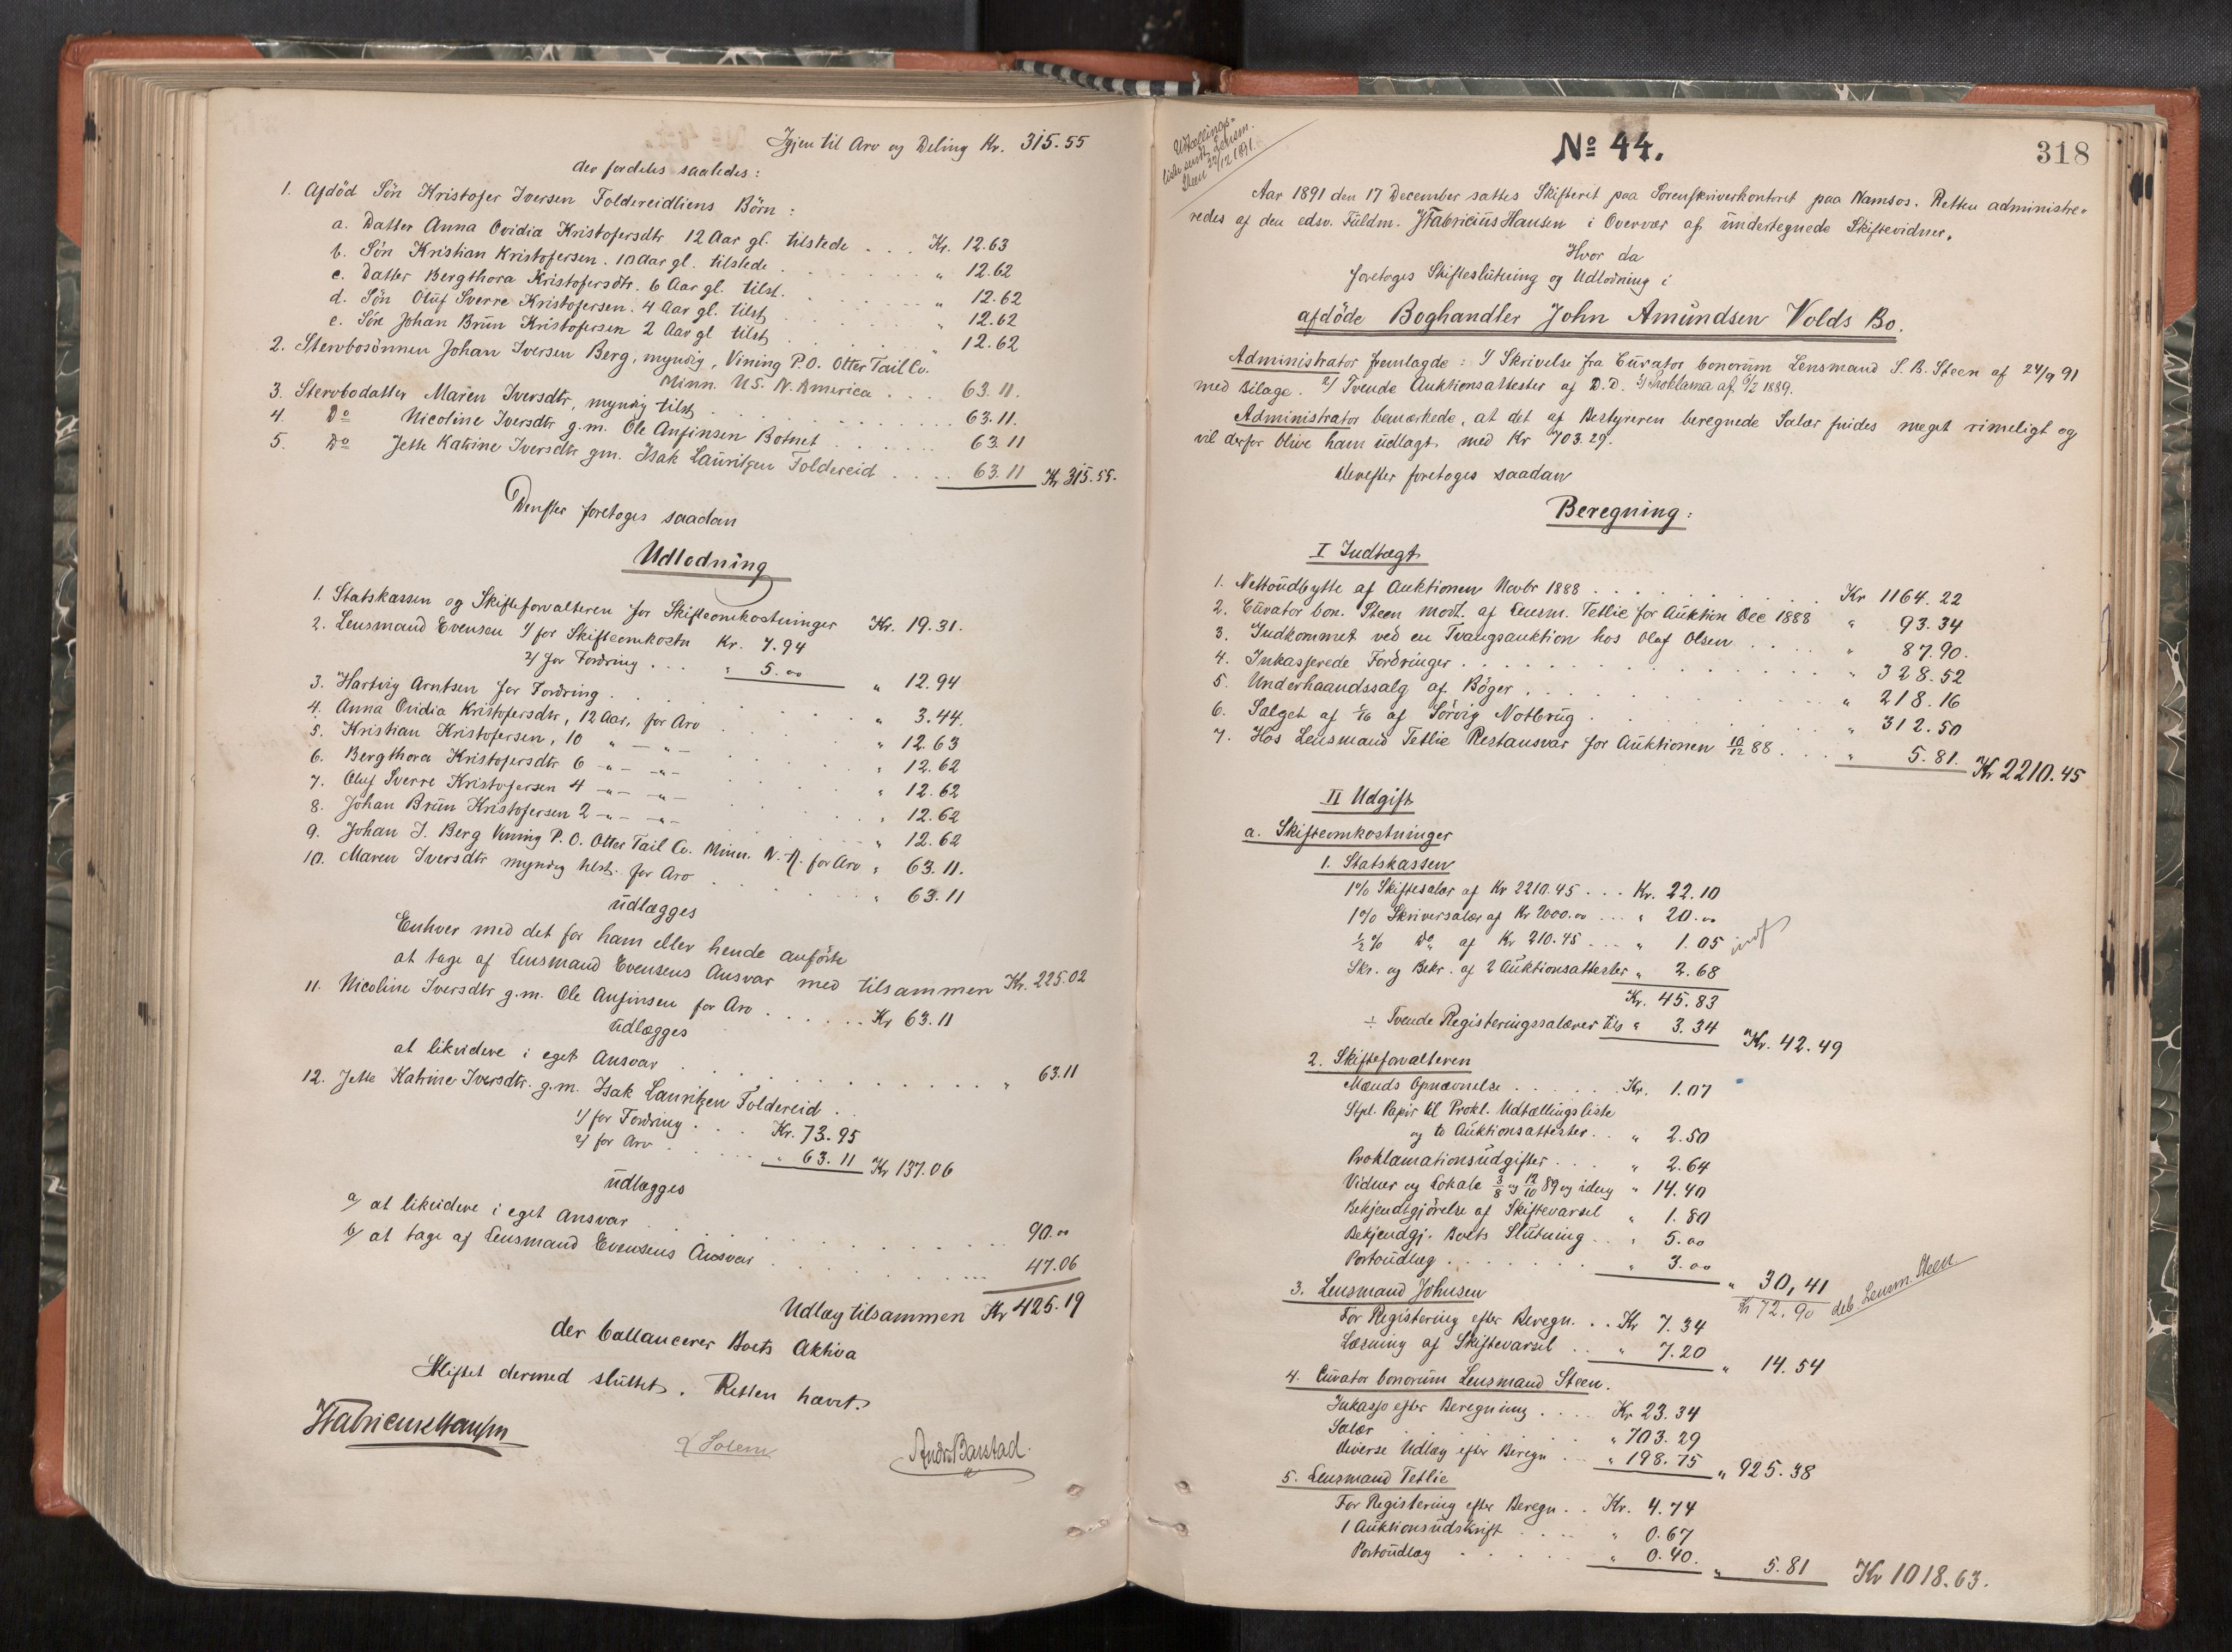 Igjen til Arv og Deling Kr. 315.55
der fordeles saaledes:
1. Afdöd Sön Kristofer Iversen Foldereidliens Börn:
a. Datter Anna Ovidia Kristofersdtr 12 Aar gl. tilstede . . . Kr. 12.63
b. Sön Kristian Kristofersen. 10 Aar gl. tilstede . . . " 12.62
c. Datter Bergthora Kristofersdtr. 6 Aar gl. tilst. . . . " 12.62
d. Sön Oluf Sverre Kristofersen. 4 Aar gl. tilst. . . . " 12.62
e. Sön Johan Brün Kristofersen 2 Aar gl tilst . . . " 12.62
2. Stervbosönnen Johan Iversen Berg, myndig, Vining P.O. Otter Tail Co.
Minn. U.S. N. America . . . 63.11.
3. Stervbodatter Maren Iversdtr, myndig tilst . . . 63.11.
4. Do Nicoline Iversdtr g.m. Ole Anfinsen Botnet . . . 63.11
5. Do Jette Katrine Iversdtr gm. Isak Lauritzen Foldereid . . . 63.11 Kr 315.55.
Derefter foretoges saadan
Udlodning
1. Statskassen og Skifteforvalteren for Skifteomkostninger Kr. 19.31.
2. Lensmand Evensen 1/ for Skifteomkostn Kr. 7.94
2/ for Fordring . . . " 5.00 " 12.94
3. Hartvig Arntsen for Fordring . . . " 3.44.
4. Anna Ovidia Kristofersdtr, 12 Aar, for Arv . . . " 12.63
5. Kristian Kristofersen, 10 " — " — . . . " 12.62
6. Bergthora Kristofersdtr 6 — " — — " — . . . " 12.62
7. Oluf Sverre Kristofersen 4 — " — — " — . . . " 12.62
8. Johan Brün Kristofersen 2 — " — — " — . . . " 12.62
9. Johan I. Berg Vining P.O. Otter Tail Co. Minn. N.A. for Arv " 63.11.
10. Maren Iversdtr myndig tilst. for Arv . . . " 63.11
udlægges
Enhver med det for ham eller hende anförte
at tage af Lensmand Evensens Ansvar med tilsammen Kr. 225.02
11. Nicoline Iversdtr g.m. Ole Anfinsen for Arv . . . Kr 63.11
udlægges
at likvidere i eget Ansvar . . . " 63.11
12. Jette Katrine Iversdtr. g.m. Isak Lauritzen Foldereid . .
1/ for Fordring . . . Kr. 73.95
2/ for Arv . . . " 63.11 Kr 137.06
udlægges
a/ at likvidere i eget Ansvar . . . 90.00
b/ at tage af Lensmand Evensens Ansvar . . . 47.06
Udlæg tilsammen Kr 425.19
der ballancerer Boets Aktiva
Skiftet dermed sluttet. Retten hævet.
JFabriciusHansen
Solem
Andr Barstad.
Udtællings-
liste sendt Lensm.
Steen 22/12 1891.
No 44.
318
Aar 1891 den 17 December sattes Skifteret paa Sorenskriverkontoret paa Namsos. Retten administre-
redes af den edsv. Fuldm. JFabricius Hansen i Overvær af undertegnede Skiftevidner.
Hvor da
foretoges Skifteslutning og Udlodning i
afdöde Boghandler John Amundsen Volds Bo.
Administrator fremlagde: 1/ Skrivelse fra Curator bonorum Lensmand S. B. Steen af 24/9 91
med Bilage. 2/ Tvende Auktionsattester af D.D. 3/ Proklama af 9/2 1889.
Administrator bemærkede, at det af Bestyreren beregnede Salær findes meget rimeligt og
vil derfor blive ham udlagt med Kr 703.29.
Derefter foretoges saadan
Beregning:
I Indtægt
1. Nettoudbytte af Auktionen Novbr 1888 . . . Kr 1164.22
2. Curator bon. Steen modt. af Lensm. Tetlie for Auktion Dec 1888 " 93.34
3. Indkommet ved en Tvangsauktion hos Olaf Olsen . . . " 87.90.
4. Inkasserede Fordringer . . . " 328.52
5. Underhaandssalg af Böger . . . " 218.16
6. Salget af 1/16 af Sörvig Notbrug . . . " 312.50
7. Hos Lensmand Tetlie Restansvar for Auktionen 10/12 88 . . . " 5.81. Kr 2210.45
II Udgift
a. Skifteomkostninger
1. Statskassen
1% Skiftesalær af Kr 2210.45 . . . Kr. 22.10
1% Skriversalær af Kr 2000.00 . . . " 20.00
1/2 % Do af Kr 210.45 . . . " 1.05
Skr. og Bekr. af 2 Auktionsattester " 2.68
Kr. 45.83
÷ Tvende Registeringssalærer tils " 3.34 Kr. 42.49
2. Skifteforvalteren
Mænds Opnævnelse . . . Kr. 1.07
Stpl. Papir til Prokl. Udtællingsliste
og to Auktionsattester . . " 2.50
Proklamationsudgifter . . . " 2.64
Vidner og Lokale 3/8 og 12/10 89 og idag " 14.40
Bekjendtgjörelse af Skiftevarsel " 1.80
Bekjendtgj. Boets Slutning . . " 5.00
Portoudlæg . . . " 3.00 " 30,41
Kr 72.90 deb. Lensm. Steen
3. Lensmand Johnsen
For Registering efter Beregn. . . Kr 7.34
Læsning af Skiftevarsel . . " 7.20 " 14.54
4. Curator bonorum Lensmand Steen.
Inkasso efter Beregning . . . Kr 23.34
Salær . . . " 703.29
Diverse Udlæg efter Beregn . . " 198.75 " 925.38
5. Lensmand Tetlie
For Registering efter Beregn . . Kr. 4.74
1 Auktionsudskrift . . . " 0.67
Portoudlæg . . . " 0.40. " 5.81 Kr 1018.63.